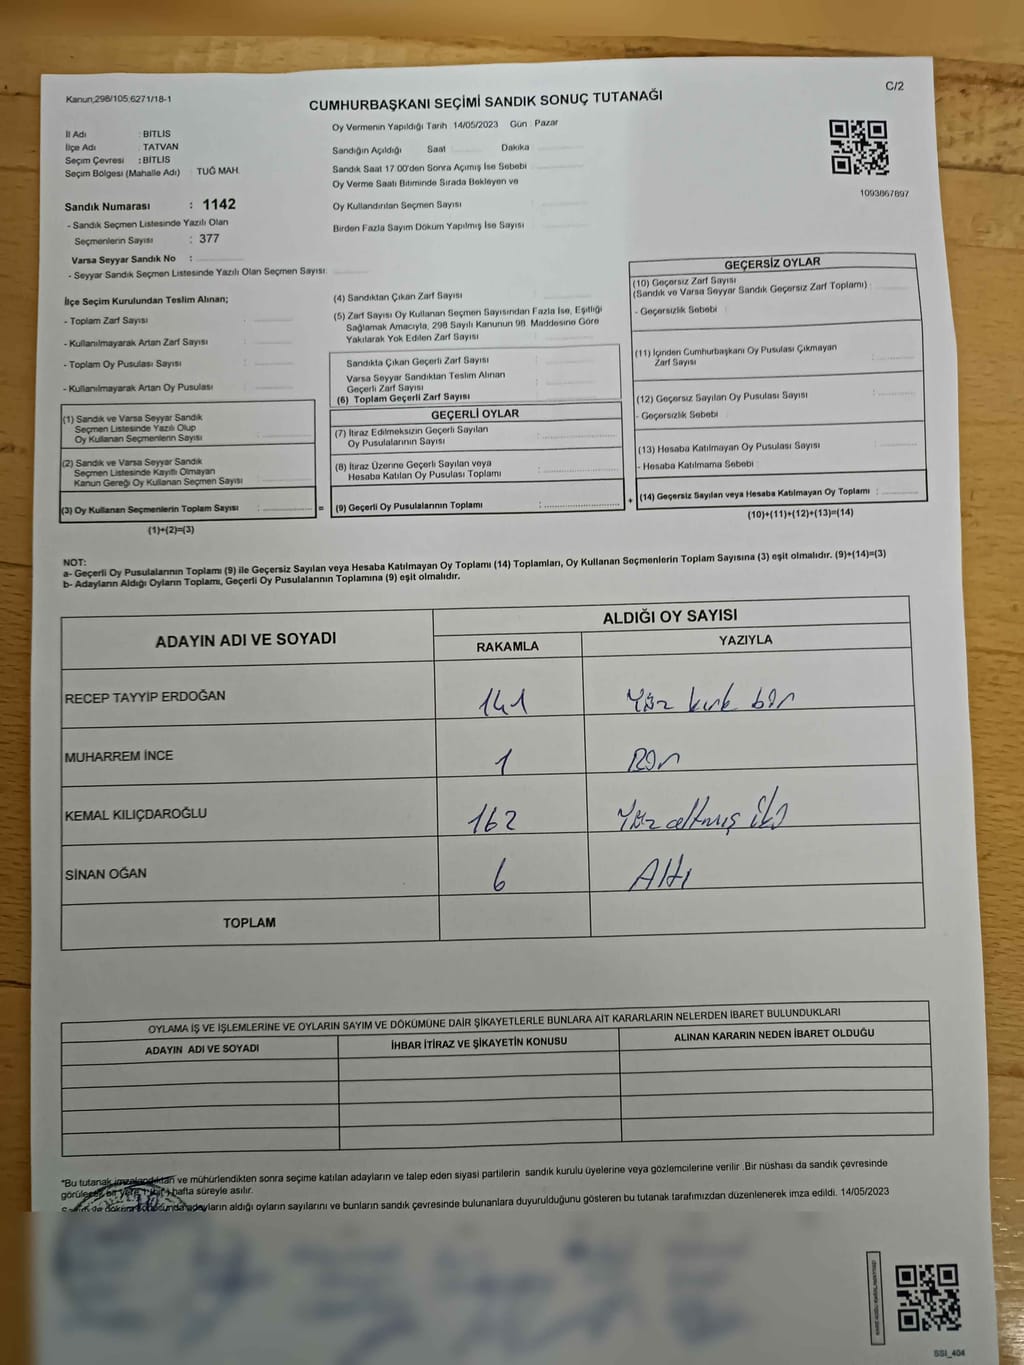 Kanun;298/105;6271/18-1
C/2
CUMHURBAŞKANI SEÇİMİ SANDIK SONUÇ TUTANAĞI
İl Adı : BİTLİS
İlçe Adı : TATVAN
Seçim Çevresi : BİTLİS
Seçim Bölgesi (Mahalle Adı) : TUĞ MAH.
Oy Vermenin Yapıldığı Tarih : 14/05/2023 Gün : Pazar
Sandığın Açıldığı Saat Dakika
Sandık Saat 17:00'den Sonra Açımış İse Sebebi
Oy Verme Saati Bitiminde Sırada Bekleyen ve
Oy Kullandırılan Seçmen Sayısı
Birden Fazla Sayım Döküm Yapılmış İse Sayısı
1093867897
Sandık Numarası : 1142
- Sandık Seçmen Listesinde Yazılı Olan
Seçmenlerin Sayısı : 377
Varsa Seyyar Sandık No :
- Seyyar Sandık Seçmen Listesinde Yazılı Olan Seçmen Sayısı:
İlçe Seçim Kurulundan Teslim Alınan;
- Toplam Zarf Sayısı :
- Kullanılmayarak Artan Zarf Sayısı :
- Toplam Oy Pusulası Sayısı :
- Kullanılmayarak Artan Oy Pusulası :
(1) Sandık ve Varsa Seyyar Sandık
Seçmen Listesinde Yazılı Olup
Oy Kullanan Seçmenlerin Sayısı :
(2) Sandık ve Varsa Seyyar Sandık
Seçmen Listesinde Kayıtlı Olmayan
Kanun Gereği Oy Kullanan Seçmen Sayısı :
(3) Oy Kullanan Seçmenlerin Toplam Sayısı :
(1)+(2)=(3)
(4) Sandıktan Çıkan Zarf Sayısı
(5) Zarf Sayısı Oy Kullanan Seçmen Sayısından Fazla İse, Eşitliği
Sağlamak Amacıyla, 298 Sayılı Kanunun 98. Maddesine Göre
Yakılarak Yok Edilen Zarf Sayısı :
Sandıkta Çıkan Geçerli Zarf Sayısı :
Varsa Seyyar Sandıktan Teslim Alınan
Geçerli Zarf Sayısı :
(6) Toplam Geçerli Zarf Sayısı
GEÇERLİ OYLAR
(7) İtiraz Edilmeksizin Geçerli Sayılan
Oy Pusulalarının Sayısı :
(8) İtiraz Üzerine Geçerli Sayılan veya
Hesaba Katılan Oy Pusulası Toplamı :
= (9) Geçerli Oy Pusulalarının Toplamı :
GEÇERSİZ OYLAR
(10) Geçersiz Zarf Sayısı
(Sandık ve Varsa Seyyar Sandık Geçersiz Zarf Toplamı) :
- Geçersizlik Sebebi :
(11) İçinden Cumhurbaşkanı Oy Pusulası Çıkmayan
Zarf Sayısı :
(12) Geçersiz Sayılan Oy Pusulası Sayısı :
- Geçersizlik Sebebi :
(13) Hesaba Katılmayan Oy Pusulası Sayısı :
- Hesaba Katılmama Sebebi :
+ (14) Geçersiz Sayılan veya Hesaba Katılmayan Oy Toplamı :
(10)+(11)+(12)+(13)=(14)
NOT:
a- Geçerli Oy Pusulalarının Toplamı (9) ile Geçersiz Sayılan veya Hesaba Katılmayan Oy Toplamı (14) Toplamları, Oy Kullanan Seçmenlerin Toplam Sayısına (3) eşit olmalıdır. (9)+(14)=(3)
b- Adayların Aldığı Oyların Toplamı, Geçerli Oy Pusulalarının Toplamına (9) eşit olmalıdır.
ADAYIN ADI VE SOYADI
ALDIĞI OY SAYISI
RAKAMLA YAZIYLA
RECEP TAYYİP ERDOĞAN 141 Yüz kırk bir
MUHARREM İNCE 1 Bir
KEMAL KILIÇDAROĞLU 162 Yüz altmış iki
SİNAN OĞAN 6 Altı
TOPLAM
OYLAMA İŞ VE İŞLEMLERİNE VE OYLARIN SAYIM VE DÖKÜMÜNE DAİR ŞİKAYETLERLE BUNLARA AİT KARARLARIN NELERDEN İBARET BULUNDUKLARI
ADAYIN ADI VE SOYADI İHBAR İTİRAZ VE ŞİKAYETİN KONUSU ALINAN KARARIN NEDEN İBARET OLDUĞU
"Bu tutanak imzalandıktan ve mühürlendikten sonra seçime katılan adayların ve talep eden siyasi partilerin sandık kurulu üyelerine veya gözlemcilerine verilir .Bir nüshası da sandık çevresinde
görülecek bir yere 1 (bir) hafta süreyle asılır.
adayların aldığı oyların sayılarını ve bunların sandık çevresinde bulunanlara duyurulduğunu gösteren bu tutanak tarafımızdan düzenlenerek imza edildi. 14/05/2023
SSI_404